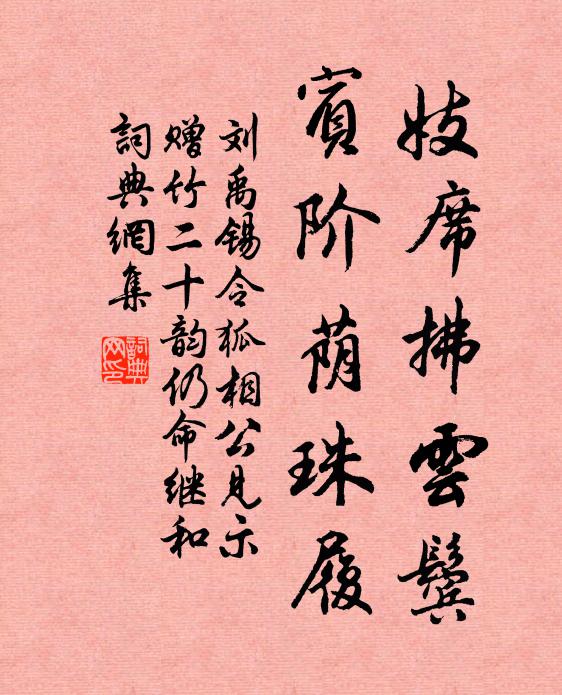 妓席拂雲鬓
賓阶荫珠履
刘禹锡令狐相公见示
赠竹二十韵仍命继和
詞典網集
詞典
网印